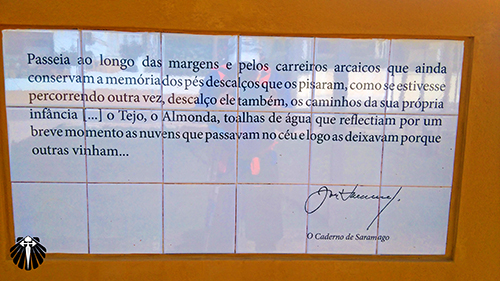 Passeia ao longo das margens e pelos carreiros arcaicos que ainda
conservam a memória dos pés descalços que os pisaram, como se estivesse
percorrendo outra vez, descalço ele também, os caminhos da sua própria
infância [...] o Tejo, o Almonda, toalhas de água que reflectiam por um
breve momento as nuvens que passavam no céu e logo as deixavam porque
outras vinham...
O Caderno de Saramago